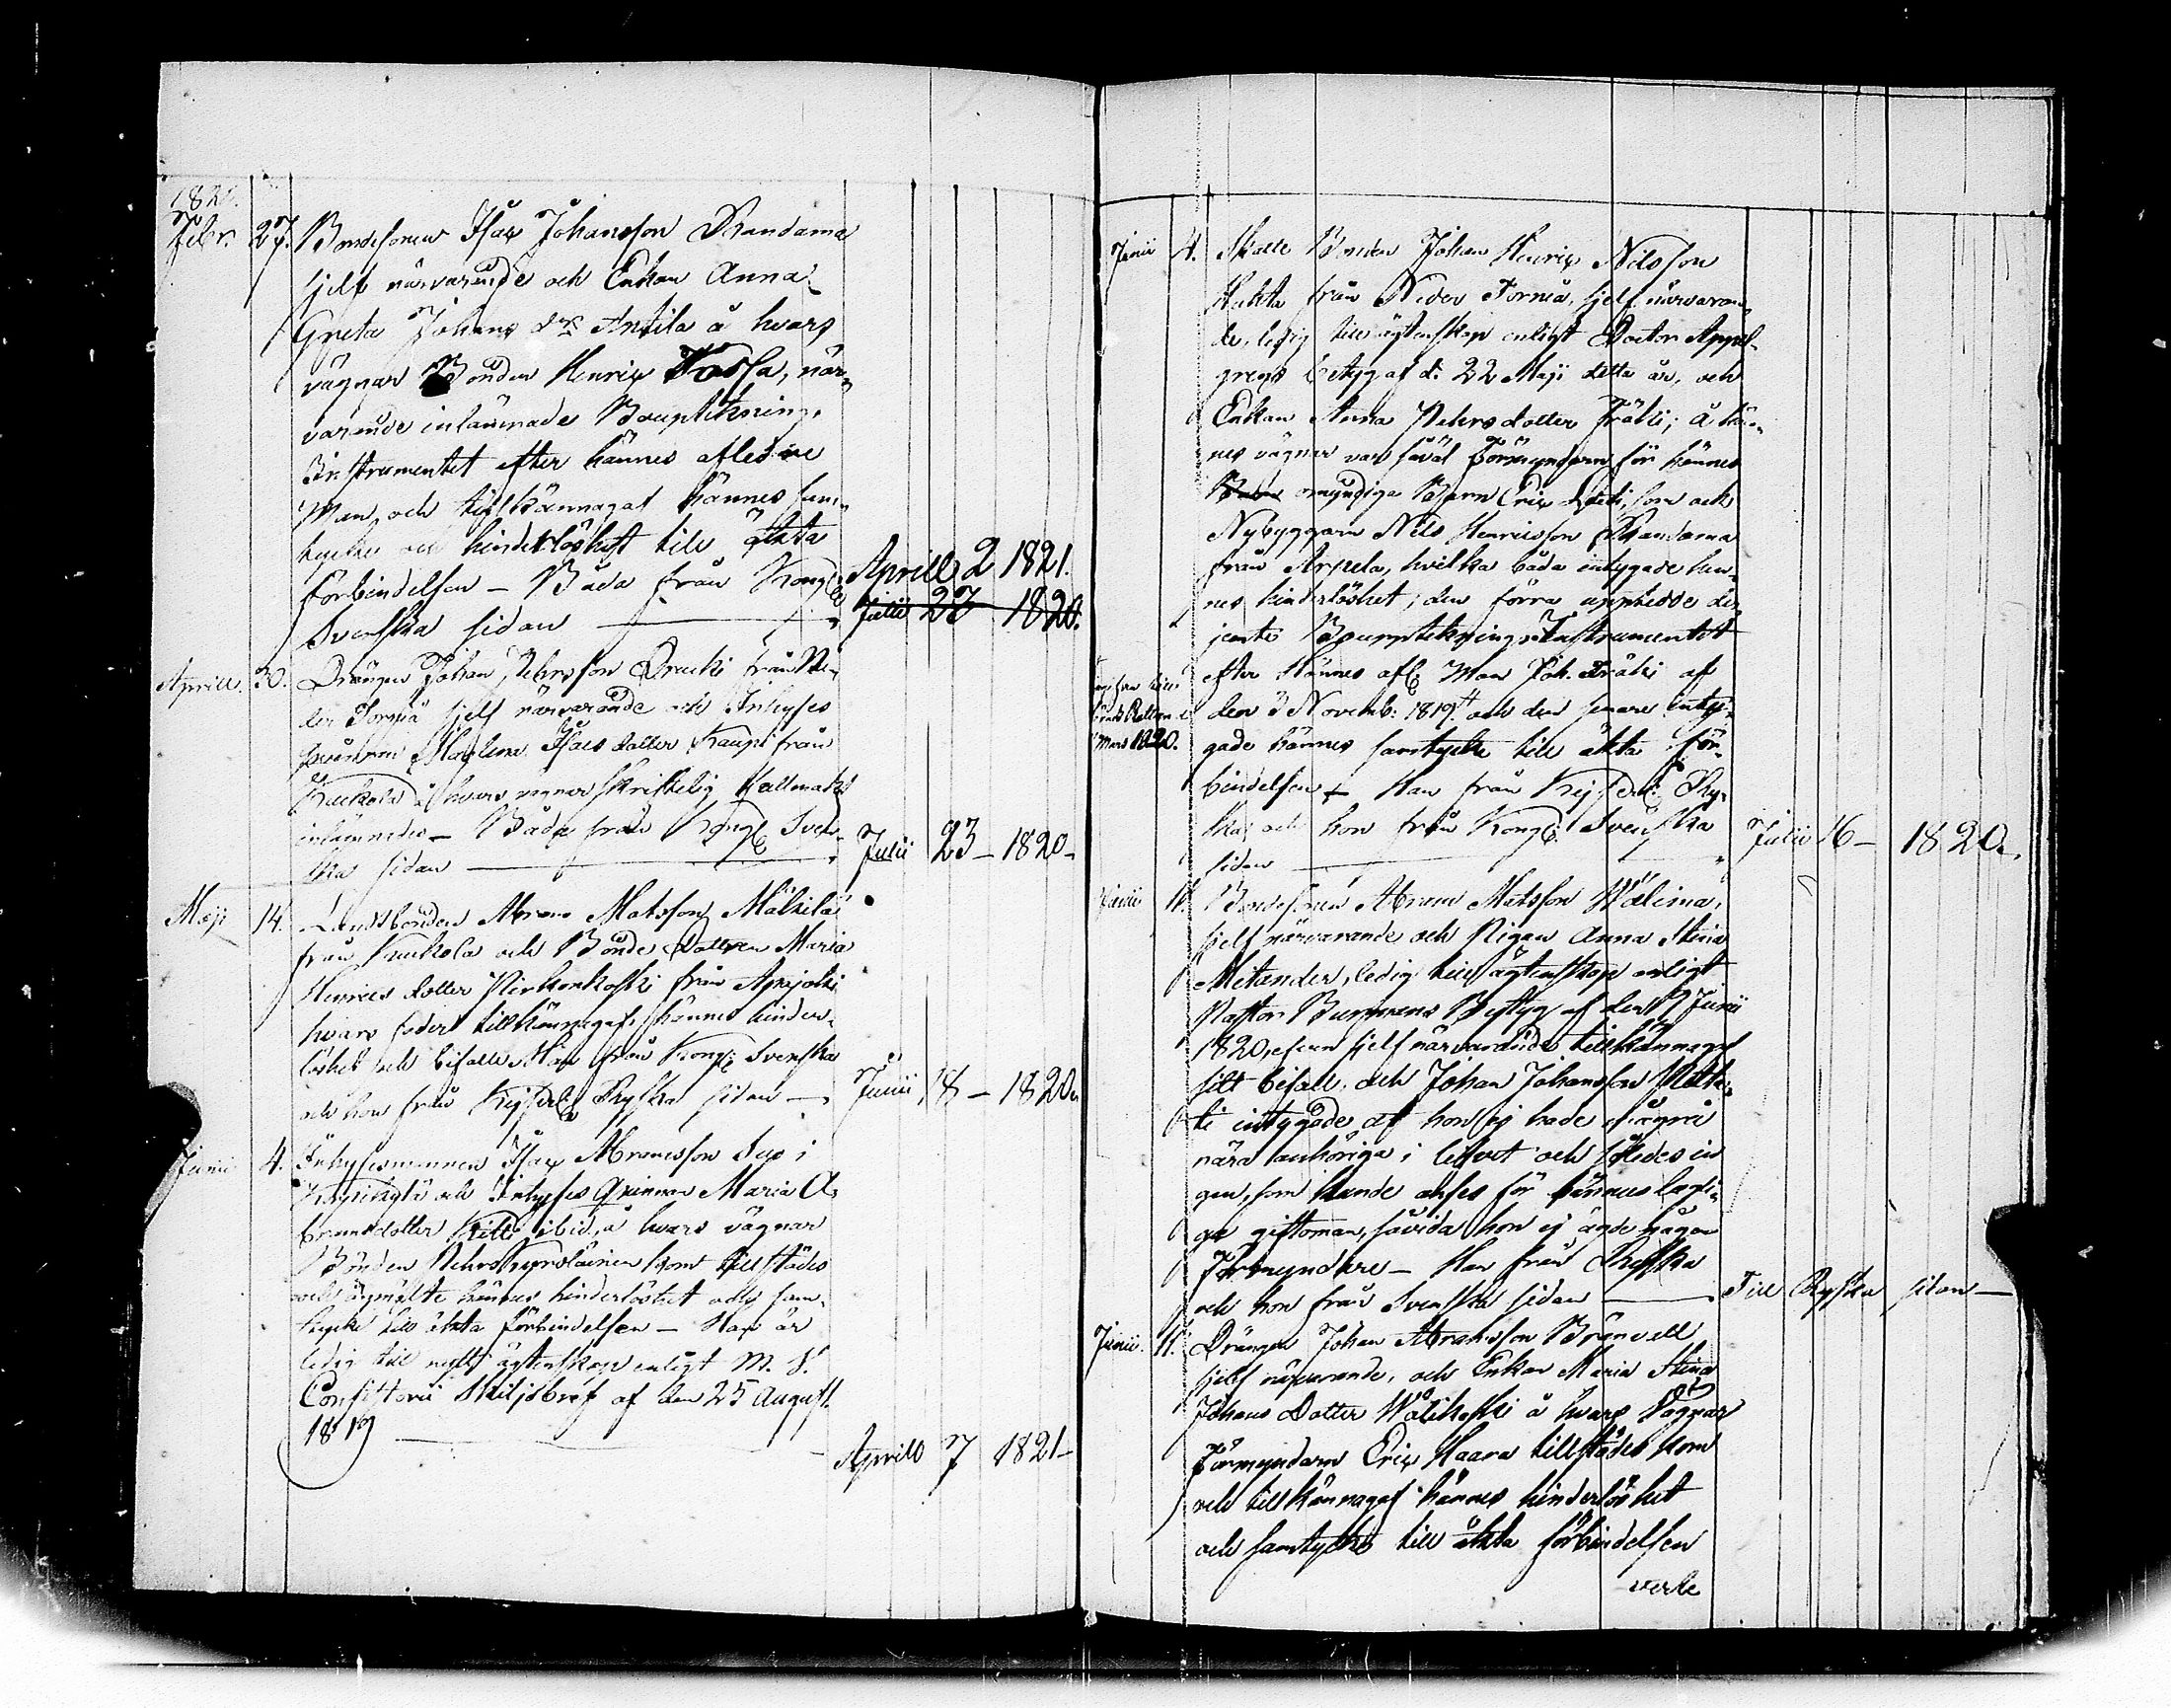 1820.
Febr. 27. Bondesonen Isax Johansson Randama
sjelf närvarande och Enkan Anna
Greta Johans dr Antila å hvars
vägnar Bonden Henrix Vossa, när-
varande inlämnade Bouptekning.
Instrumentet efter hännes aflidne
Man, och tillkännagaf hännes sam-
tycke och hinderlöshet till äkta
förbindelsen — Båda från Kongl.
Svenska sidan —
Aprill 2 1821.
Julii 23 1820.
Aprill. 30. Drängen Johan Pehrsson Kraeki från Ne-
der Torneå sjelf närvarande och Inhyses
qvinnan Maglena Isacs dotter Kaupi från
Kuckola å hvars vägnar skriftelig fullmakt
inlämnades — Båda från Kongl. Svens-
ka sidan —
Julii 23 — 1820 —
Maji 14. Landbonden Abram Matsson Mälkilä
från Kuckola och Bonde dottren Maria
Henrics dotter Pirkonkoski från Apajoki
hvars fader tillkännagaf hännes hinder-
löshet och bifall. Han från Kongl: Svenska
och hon från Kejserl. Ryska sidan —
Junii 18 — 1820.
Junii 4. Inhysesmannen Isax Abramsson Sup i
och Inhyses Qvinnan Maria A-
bramsdotter Kilti ibid., å hvars vägnar
Bonden Pehr Kyröläinen kom tillstädes
och anmälte hännes hinderlöshet och sam-
tycke till äkta förbindelsen — Han är
ledig till nytt ägtenskap enligt M. V.
Consistorii Skiljobref af den 25 August
1819 —
Aprill 7 1821 —
Junii 4. Skatte Bonden Johan Henrix Nilsson
Hahta från Neder Torneå, sjelf närvaran-
de, ledig till ägtenskap enligt Doctor Appel-
grens betyg af d. 22 Maji detta år, och
Enkan Anna Pehrsdotter Fräki; å hän-
nes vägnar var såväl Förmyndaren för hännes
omyndiga Barn Eric, som ock
Nybyggarn Nils Henricsson Randama
från Arpela, hvilka båda intygade hän-
nes hinderlöshet; den förra uppviste der
jemte Bouppteknings Instrumentet
efter Hännes afl: Man Joh. Fräki af
den 3 Novemb: 1819. och den senare intyg-
gade hännes samtycke till äkta för-
bindelsen + Han från Kejserl: Rys-
ka, och hon från Kongl: Svenska
sidan —
Mars 1820.
Julii 16 — 1820.
Junii 11. Bondesonen Abram Matsson Wälima,
sjelf närvarande och Pigan Anna Stina
Metander, ledig till ägtenskap enligt
Pastor Burmans Bettyg af den 9 Junii
1820, efven sjelf närvarande tillkännagaf
sitt bifall, och Johan Johansson
intygade at hon ej hade några
nära anhöriga i lifvet och således in
gen, som kunde anses för hännes lagli-
ga giftoman, såvida hon ej ägde någon
Förmyndare — Han från Ryska
och hon från Svenska sidan —
Till Ryska sidan —
Junii. 11. Drängen Johan Abramsson Bränvell
sjelf närvarande, och Enkan Maria Stina
Johans Dotter Wälikoski å hvars Vägnar
Förmyndarn Erix Haara tillstädes kom
och tillkännagaf hännes hinderlöshet
och samtycke till äkta förbindelsen